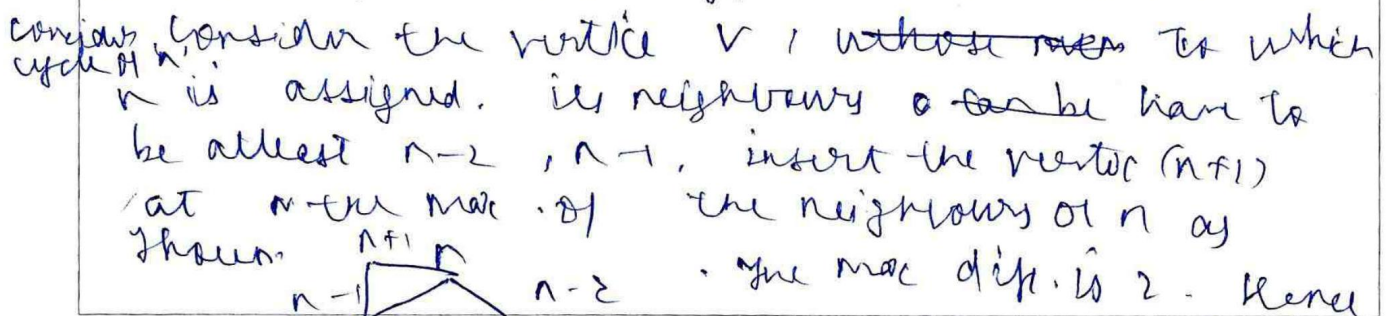 consider Consider the vertice v, to which
cycle of n
n is assigned. its neighbours have to
be atleast n-2, n-1. insert the vertic (n+1)
at the max. of the neighbours of n as
shown. n+1 n
n-1 n-2 . The max diff. is 2. Hence